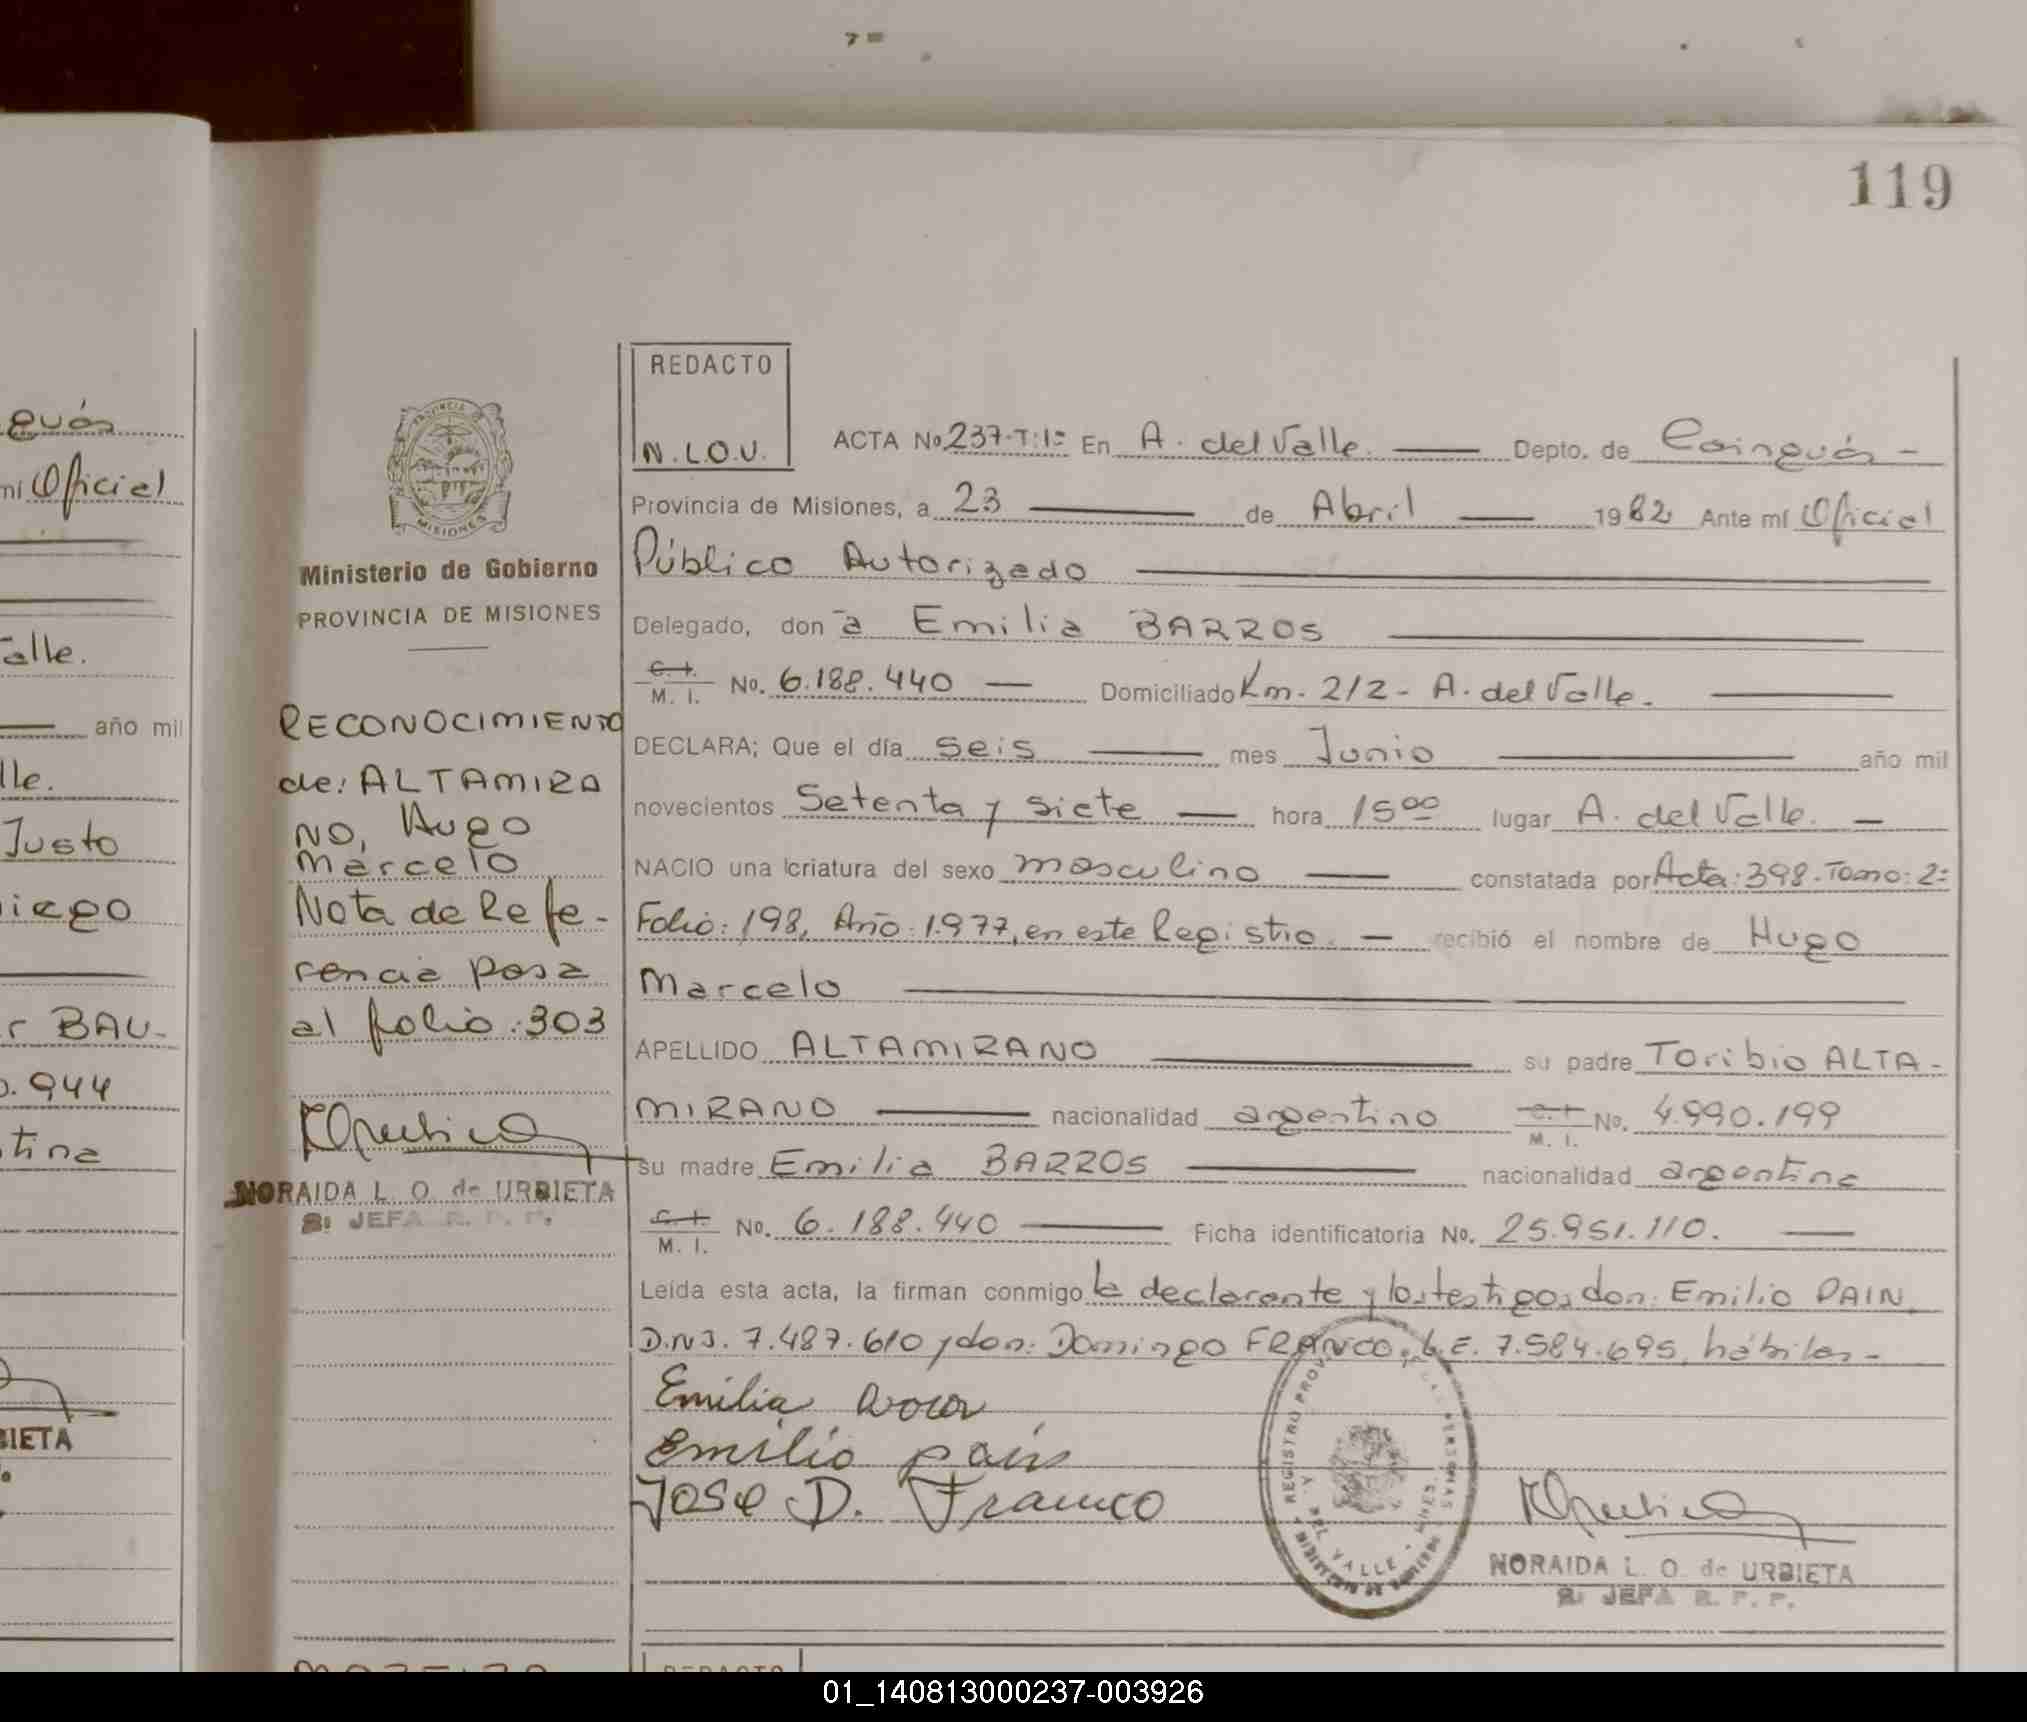 119
REDACTO
N.L.O.U.
ACTA No. 237-T:1º En A. del Valle. Depto. de Cainguás -
Provincia de Misiones, a 23 de Abril 1982 Ante mí Oficial
Público Autorizado
Delegado, don a Emilia BARROS
C. I. M. I. No. 6.188.440 Domiciliado Km. 212- A. del Valle.
DECLARA; Que el día seis mes Junio año mil
novecientos Setenta y siete hora 15 00 lugar A. del Valle.
NACIO una criatura del sexo masculino constatada por Acta: 398. Tomo: 2º
Folio: 198, Año: 1.977, en este Registro. recibió el nombre de Hugo
Marcelo
APELLIDO ALTAMIRANO su padre Toribio ALTA-
MIRANO nacionalidad argentino C. I. M. I. No. 4.990.199
su madre Emilia BARROS nacionalidad argentina
C. I. M. I. No. 6.188.440 Ficha identificatoria No. 25.951.110.
Leída esta acta, la firman conmigo la declarante y los testigos don: Emilio PAIN,
D.N.I. 7.487.610 y don: Domingo FRANCO, L.E. 7.584.695, hábiles-
Emilia
Emilio pain
Jose D. Franco
NORAIDA L. O. de URBIETA
JEFA R. P. P.
REGISTRO PROV
A. DEL VALLE - MNES.
PROVINCIA DE
MISIONES
Ministerio de Gobierno
PROVINCIA DE MISIONES
RECONOCIMIENTO
de: ALTAMIRA
NO, Hugo
Marcelo
Nota de Refe-
rencia pasa
al folio: 303
NORAIDA L. O. de URBIETA
JEFA R. P. P.
guás
mí Oficial
alle.
año mil
lle.
Justo
r BAU-
0.944
tina
BIETA
REDACTO
01_140813000237-003926